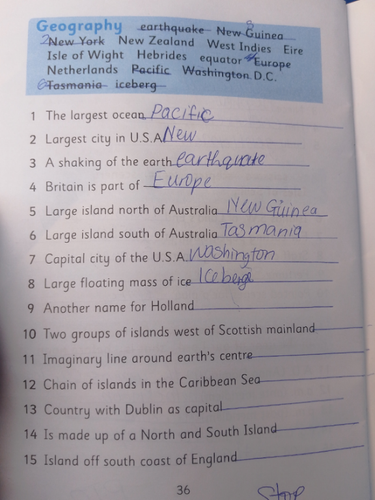 Geography earthquake New Guinea
New York New Zealand West Indies Eire
Isle of Wight Hebrides equator Europe
Netherlands Pacific Washington D.C.
Tasmania iceberg
1 The largest ocean Pacific
2 Largest city in U.S.A New
3 A shaking of the earth earthquate
4 Britain is part of Europe
5 Large island north of Australia New Guinea
6 Large island south of Australia Tasmania
7 Capital city of the U.S.A Washington
8 Large floating mass of ice Iceberge
9 Another name for Holland
10 Two groups of islands west of Scottish mainland
11 Imaginary line around earth's centre
12 Chain of islands in the Caribbean Sea
13 Country with Dublin as capital
14 Is made up of a North and South Island
15 Island off south coast of England
36